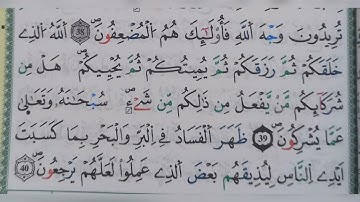 تُرِيدُونَ وَجْهَ اَ۬للَّهِ فَأُوْلَٰٓئِكَ هُمُ اُ۬لْمُضْعِفُونَۖ 38 اَ۬للَّهُ اُ۬لذِے
خَلَقَكُمْ ثُمَّ رَزَقَكُمْ ثُمَّ يُمِيتُكُمْ ثُمَّ يُحْيِيكُمْۖ هَلْ مِن
شُرَكَآئِكُم مَّنْ يَّفْعَلُ مِن ذَٰلِكُم مِّن شَےْءٖۖ سُبْحَٰنَهُۥ وَتَعَٰلَىٰ
عَمَّا يُشْرِكُونَۖ 39 ظَهَرَ اَ۬لْفَسَادُ فِے اِ۬لْبَرِّ وَالْبَحْرِ بِمَا كَسَبَتَ
اَيْدِے اِ۬لنَّاسِ لِيُذِيقَهُم بَعْضَ اَ۬لذِے عَمِلُواْ لَعَلَّهُمْ يَرْجِعُونَۖ 40